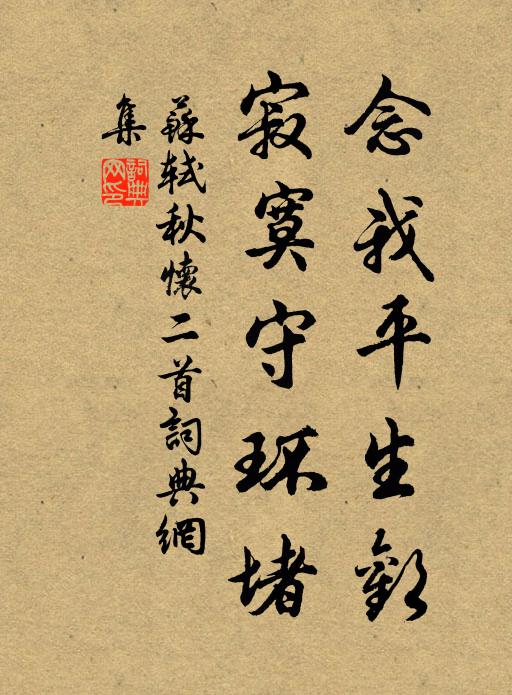 念我平生歡
寂寞守环堵
蘇軾秋懷二首詞典網
集
詞典
网印